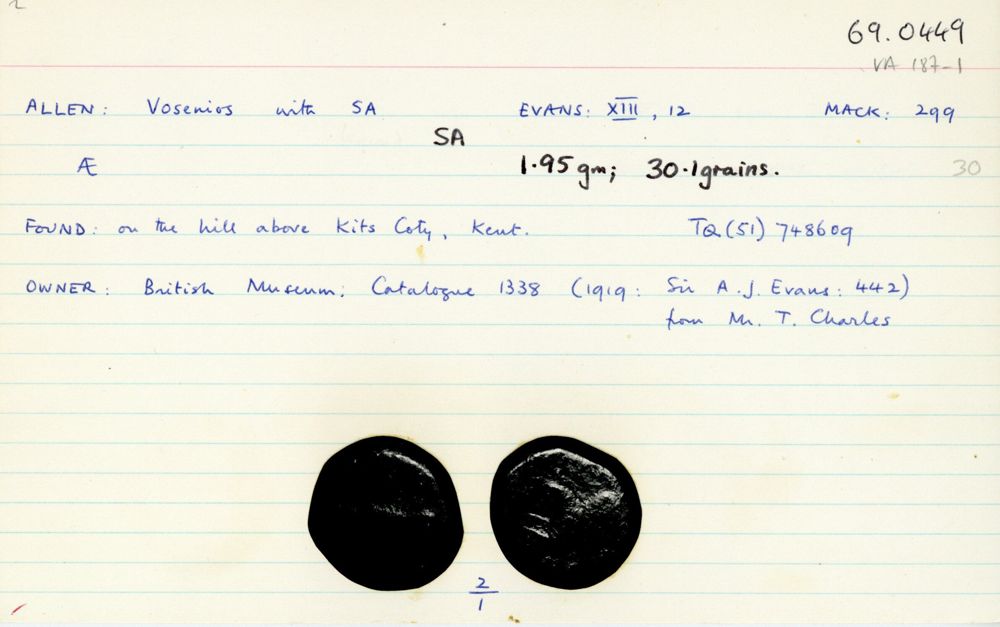 2
69.0449
VA 187-1
ALLEN: Vosenios with SA EVANS: XIII, 12 MACK: 299
SA
Æ 1.95 gm; 30.1 grains. 30
FOUND: on the hill above Kits Coty, Kent. TQ (51) 748609
OWNER: British Museum: Catalogue 1338 (1919: Sir A.J. Evans: 442)
from Mr. T. Charles
2
1